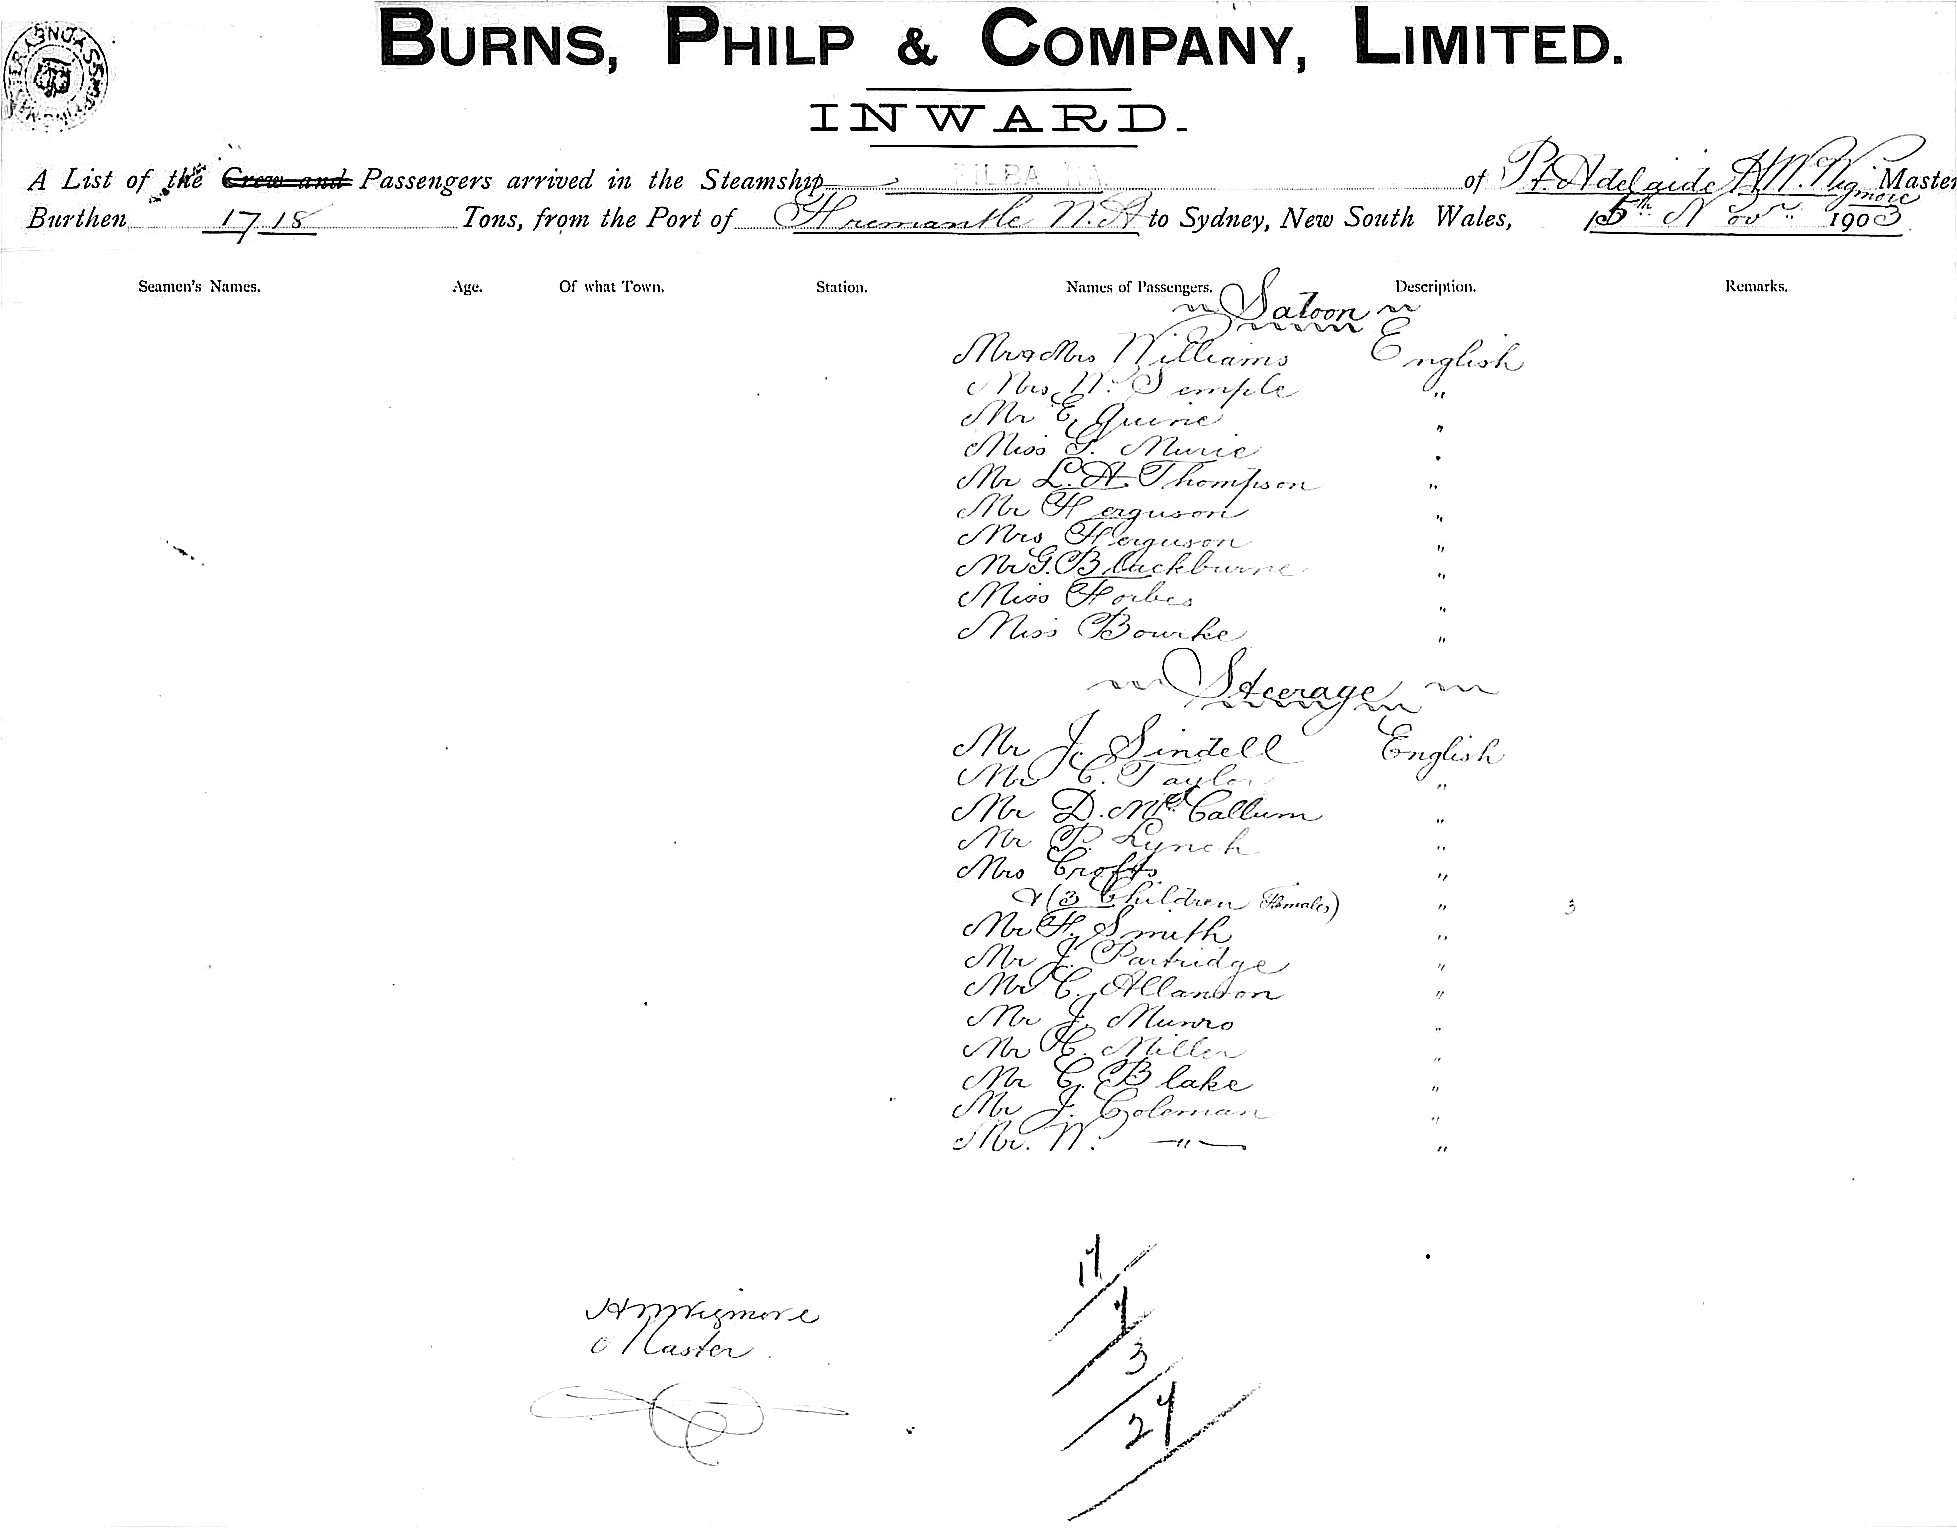 BURNS, PHILP & COMPANY, LIMITED.
INWARD.
A List of the Crew and Passengers arrived in the Steamship PILBARRA of Pt. Adelaide H. W. Wigmore Master
Burthen 1718 Tons, from the Port of Fremantle W.A to Sydney, New South Wales, 15th Novr 1903
Seamen's Names. Age. Of what Town. Station. Names of Passengers. Description. Remarks.
Saloon
Mr & Mrs Williams English
Mrs W. Semple "
Mr E. Quirie "
Miss G. Murie "
Mr L. A. Thompson "
Mr Ferguson "
Mrs Ferguson "
Mr G. Blackburne "
Miss Forbes "
Miss Bourke "
Steerage
Mr J. Sindell English
Mr C. Taylor "
Mr D. McCallum "
Mr P. Lynch "
Mrs Crofts "
& (3 Children Females) " 3
Mr F. Smith "
Mr J. Partridge "
Mr C. Allanson "
Mr J. Munro "
Mr C. Miller "
Mr C. Blake "
Mr J. Coleman "
Mr. W. — " — "
17
7
3
27
H W Wigmore
Master